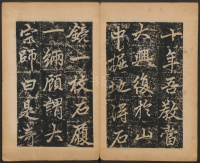 十年吾教當
大興復於山
中掘地得石
鏡一枚石履
一緉顧謂大
宗師曰是吾